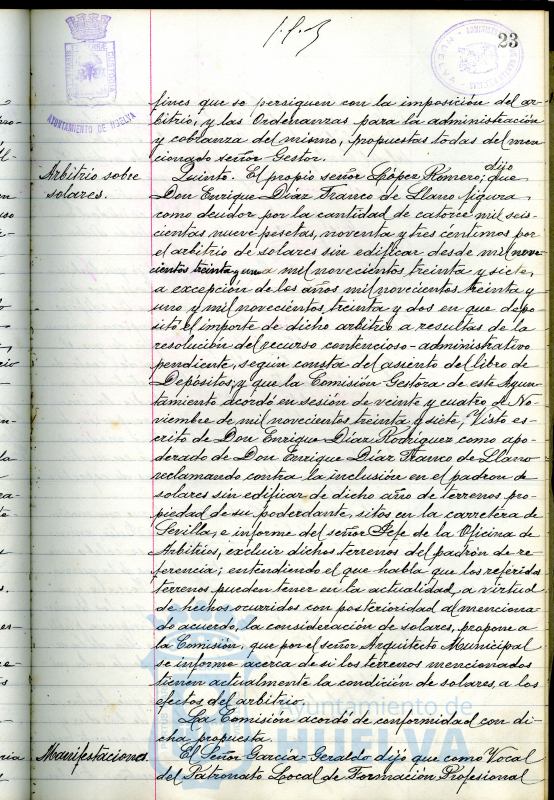 23
AYUNTAMIENTO DE HUELVA
fines que se persiguen con la imposición del ar-
bitrio, y las Ordenanzas para la administración
y cobranza del mismo, propuestas todas del men-
cionado señor Gestor.
Arbitrio sobre
solares.
Quinto. El propio señor López Romero, dijo que
Don Enrique Díaz Franco de Llano figura
como deudor por la cantidad de catorce mil seis-
cientas nueve pesetas, noventa y tres céntimos por
el arbitrio de solares sin edificar desde mil nove-
cientos treinta y uno a mil novecientos treinta y siete,
a excepción de los años mil novecientos treinta y
uno y mil novecientos treinta y dos en que depo-
sitó el importe de dicho arbitrio a resultas de la
resolución del recurso contencioso-administrativo
pendiente, según consta del asiento del libro de
Depósitos; y que la Comisión Gestora de este Ayun-
tamiento acordó en sesión de veinte y cuatro de No-
viembre de mil novecientos treinta y siete, Visto es-
crito de Don Enrique Díaz Rodríguez como apo-
derado de Don Enrique Díaz Franco de Llano
reclamando contra la inclusión en el padrón de
solares sin edificar de dicho año de terrenos pro-
piedad de su poderdante, sitos en la carretera de
Sevilla, e informe del señor Jefe de la Oficina de
Arbitrios, excluir dichos terrenos del padrón de re-
ferencia; entendiendo el que habla que los referidos
terrenos pueden tener en la actualidad, a virtud
de hechos ocurridos con posterioridad al menciona-
do acuerdo, la consideración de solares, propone a
la Comisión, que por el señor Arquitecto Municipal
se informe acerca de si los terrenos mencionados
tienen actualmente la condición de solares, a los
efectos del arbitrio.
La Comisión acordó de conformidad con di-
cha propuesta.
Manifestaciones.
El Señor García Geraldo dijo que como Vocal
del Patronato Local de Formación Profesional
Ayuntamiento de
HUELVA